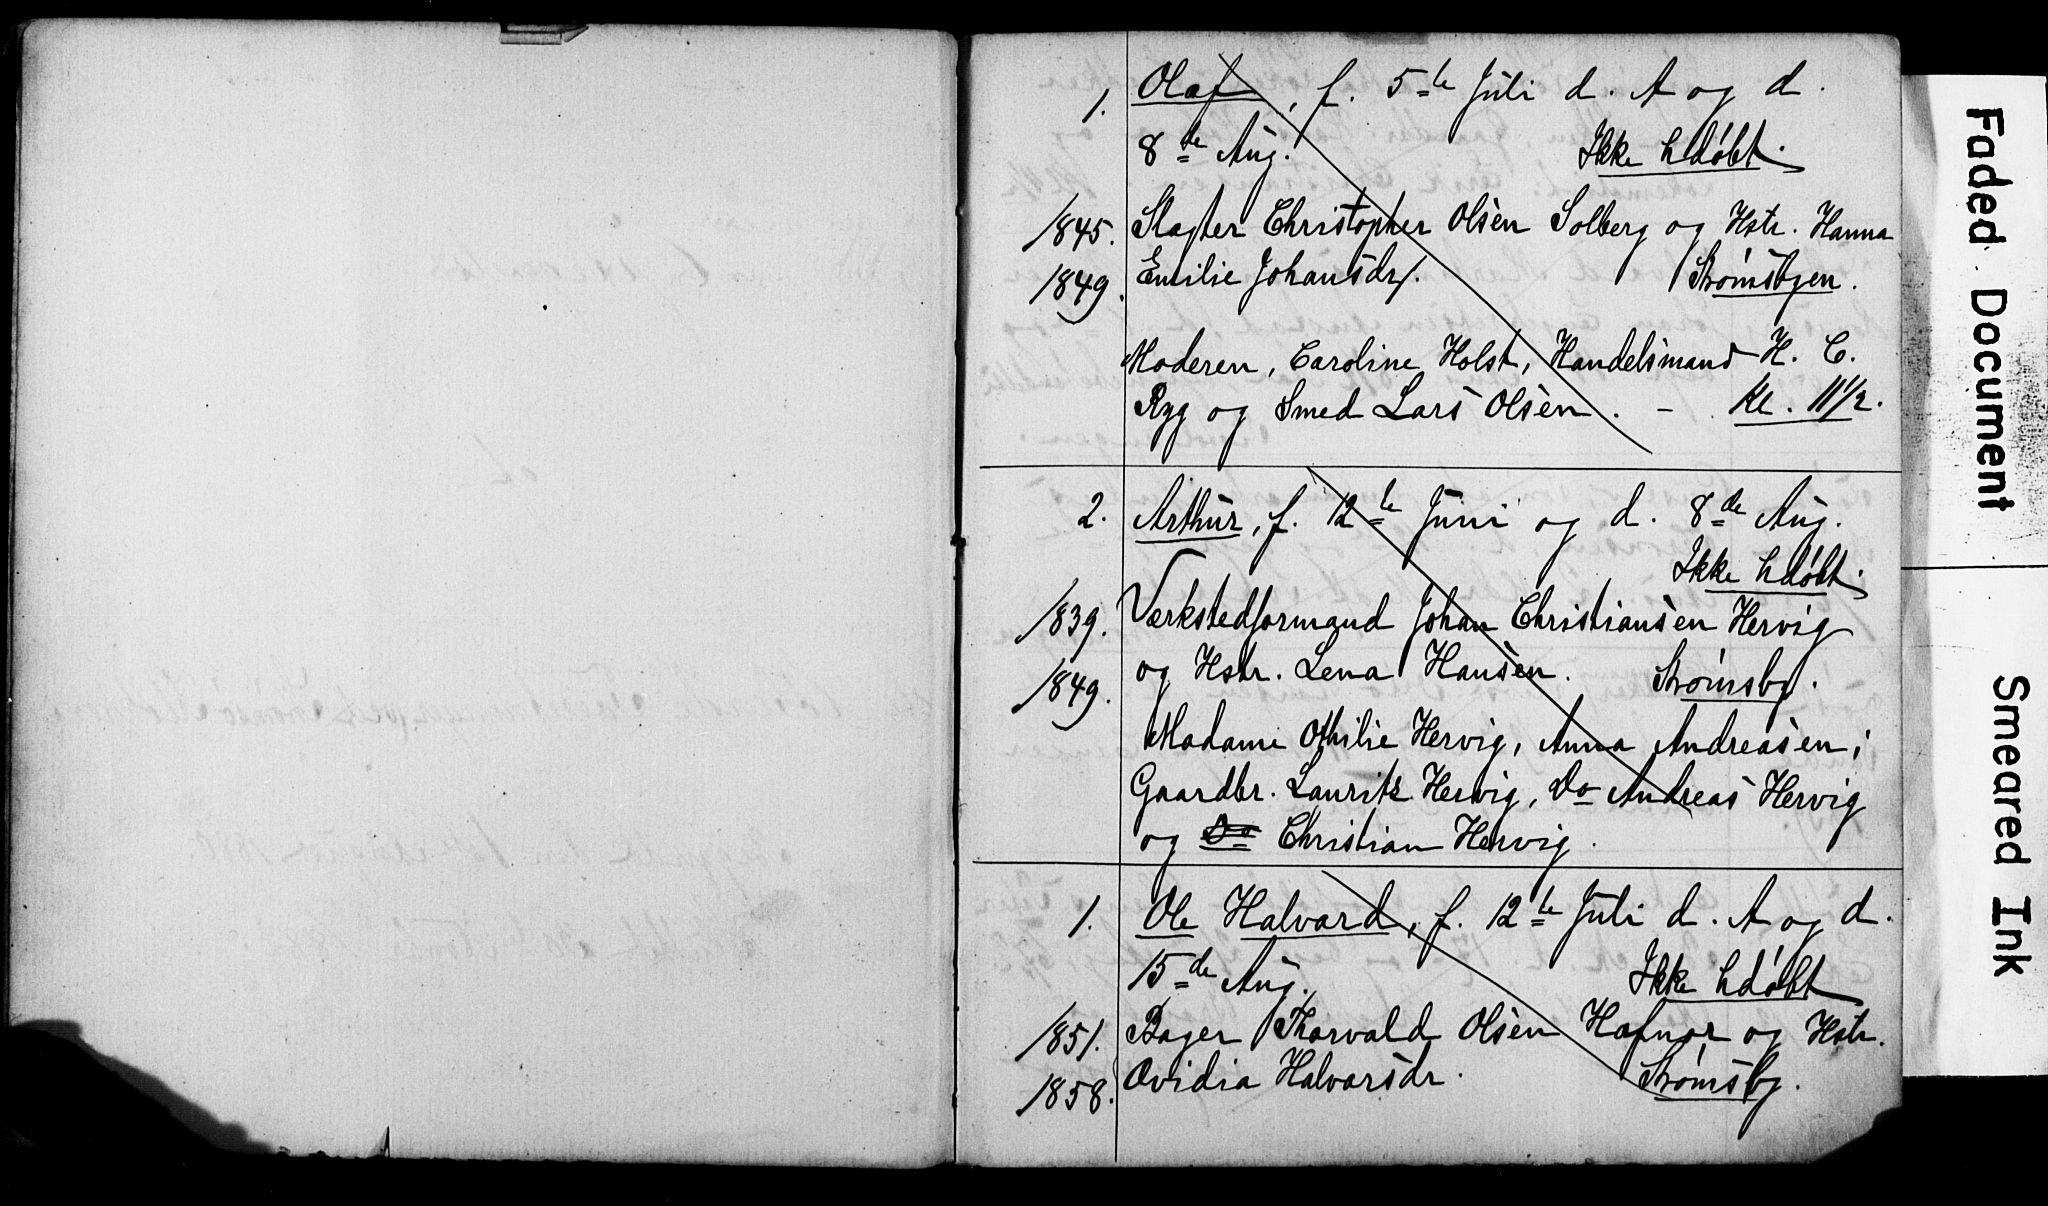 1. Olaf, f. 5te Juli d. A og d.
8de Aug. Ikke hdøbt.
1845. Slagter Christopher Olsen Solberg og Hstr. Hanna
1849. Emilie Johansdr. Strømsbgen.
Moderen, Caroline Holst, Handelsmand H. C.
Ryg og Smed Lars Olsen. - Kl. 11 1/2.
2. Arthur, f. 12te Juni og d. 8de Aug.
Ikke hdøbt.
1839. Værkstedformand Johan Christiansen Hervig
1849. og Hstr. Lena Hansen. Strømsbg.
Madame Othilie Hervig, Anna Andreasen;
Gaardbr. Lauritz Hervig, Do Andreas Hervig
og Do Christian Hervig.
1. Ole Halvard, f. 12te Juli d. A og d.
15de Aug. Ikke hdøbt
1851. Bager Thorvald Olsen Hafnor og Hstr.
1858. Ovidia Halvarsdr. Strømsbg.
Faded Document
Smeared Ink